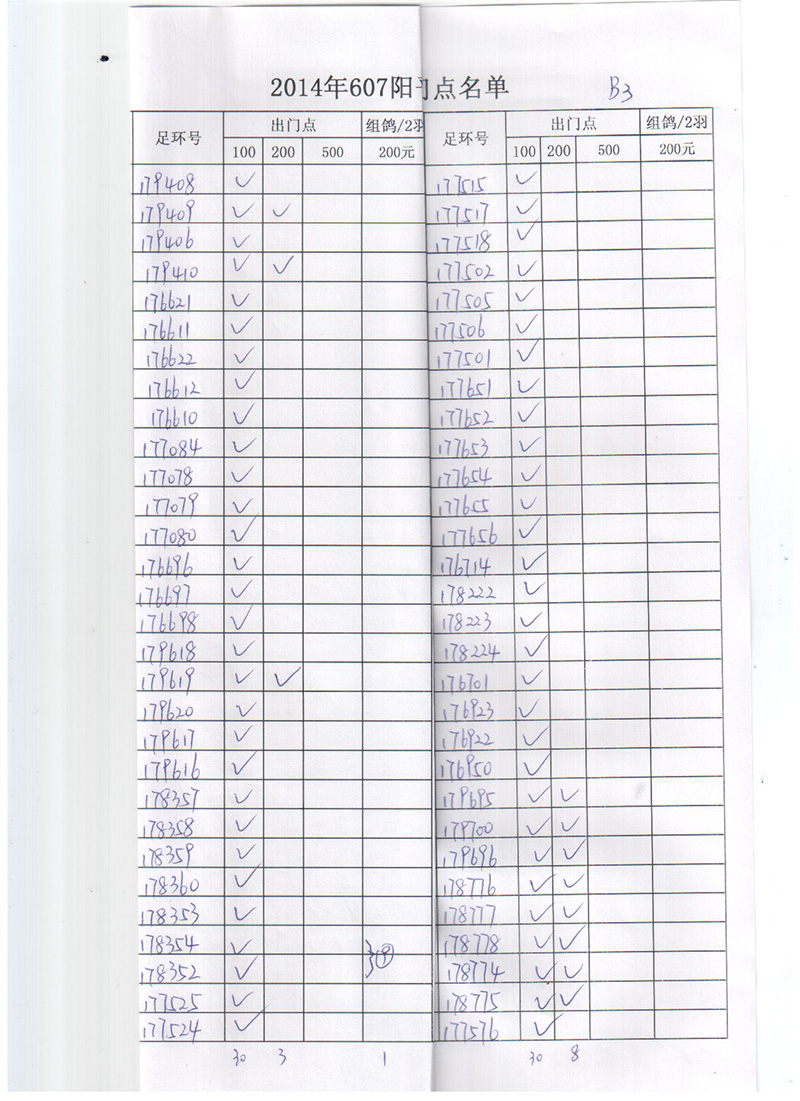 2014年607阳 点名单 B3
足环号 出门点 组鸽/2羽 足环号 出门点 组鸽/2羽
100 200 500 200元 100 200 500 200元
179408 ✓ 177515 ✓
179409 ✓ ✓ 177517 ✓
179406 ✓ 177518 ✓
179410 ✓ ✓ 177502 ✓
176621 ✓ 177505 ✓
176611 ✓ 177506 ✓
176622 ✓ 177501 ✓
176612 ✓ 177651 ✓
176610 ✓ 177652 ✓
177084 ✓ 177653 ✓
177078 ✓ 177654 ✓
177079 ✓ 177655 ✓
177080 ✓ 177656 ✓
176696 ✓ 176714 ✓
176697 ✓ 178222 ✓
176698 ✓ 178223 ✓
179618 ✓ 178224 ✓
179619 ✓ ✓ 176701 ✓
179620 ✓ 176923 ✓
179617 ✓ 176922 ✓
179616 ✓ 176950 ✓
178357 ✓ 179695 ✓ ✓
178358 ✓ 179700 ✓ ✓
178359 ✓ 179696 ✓ ✓
178360 ✓ 178776 ✓ ✓
178353 ✓ 178777 ✓ ✓
178354 ✓ 178778 ✓ ✓
178352 ✓ 178774 ✓ ✓
177525 ✓ 178775 ✓ ✓
177524 ✓ 177576 ✓
30 3 1 30 8